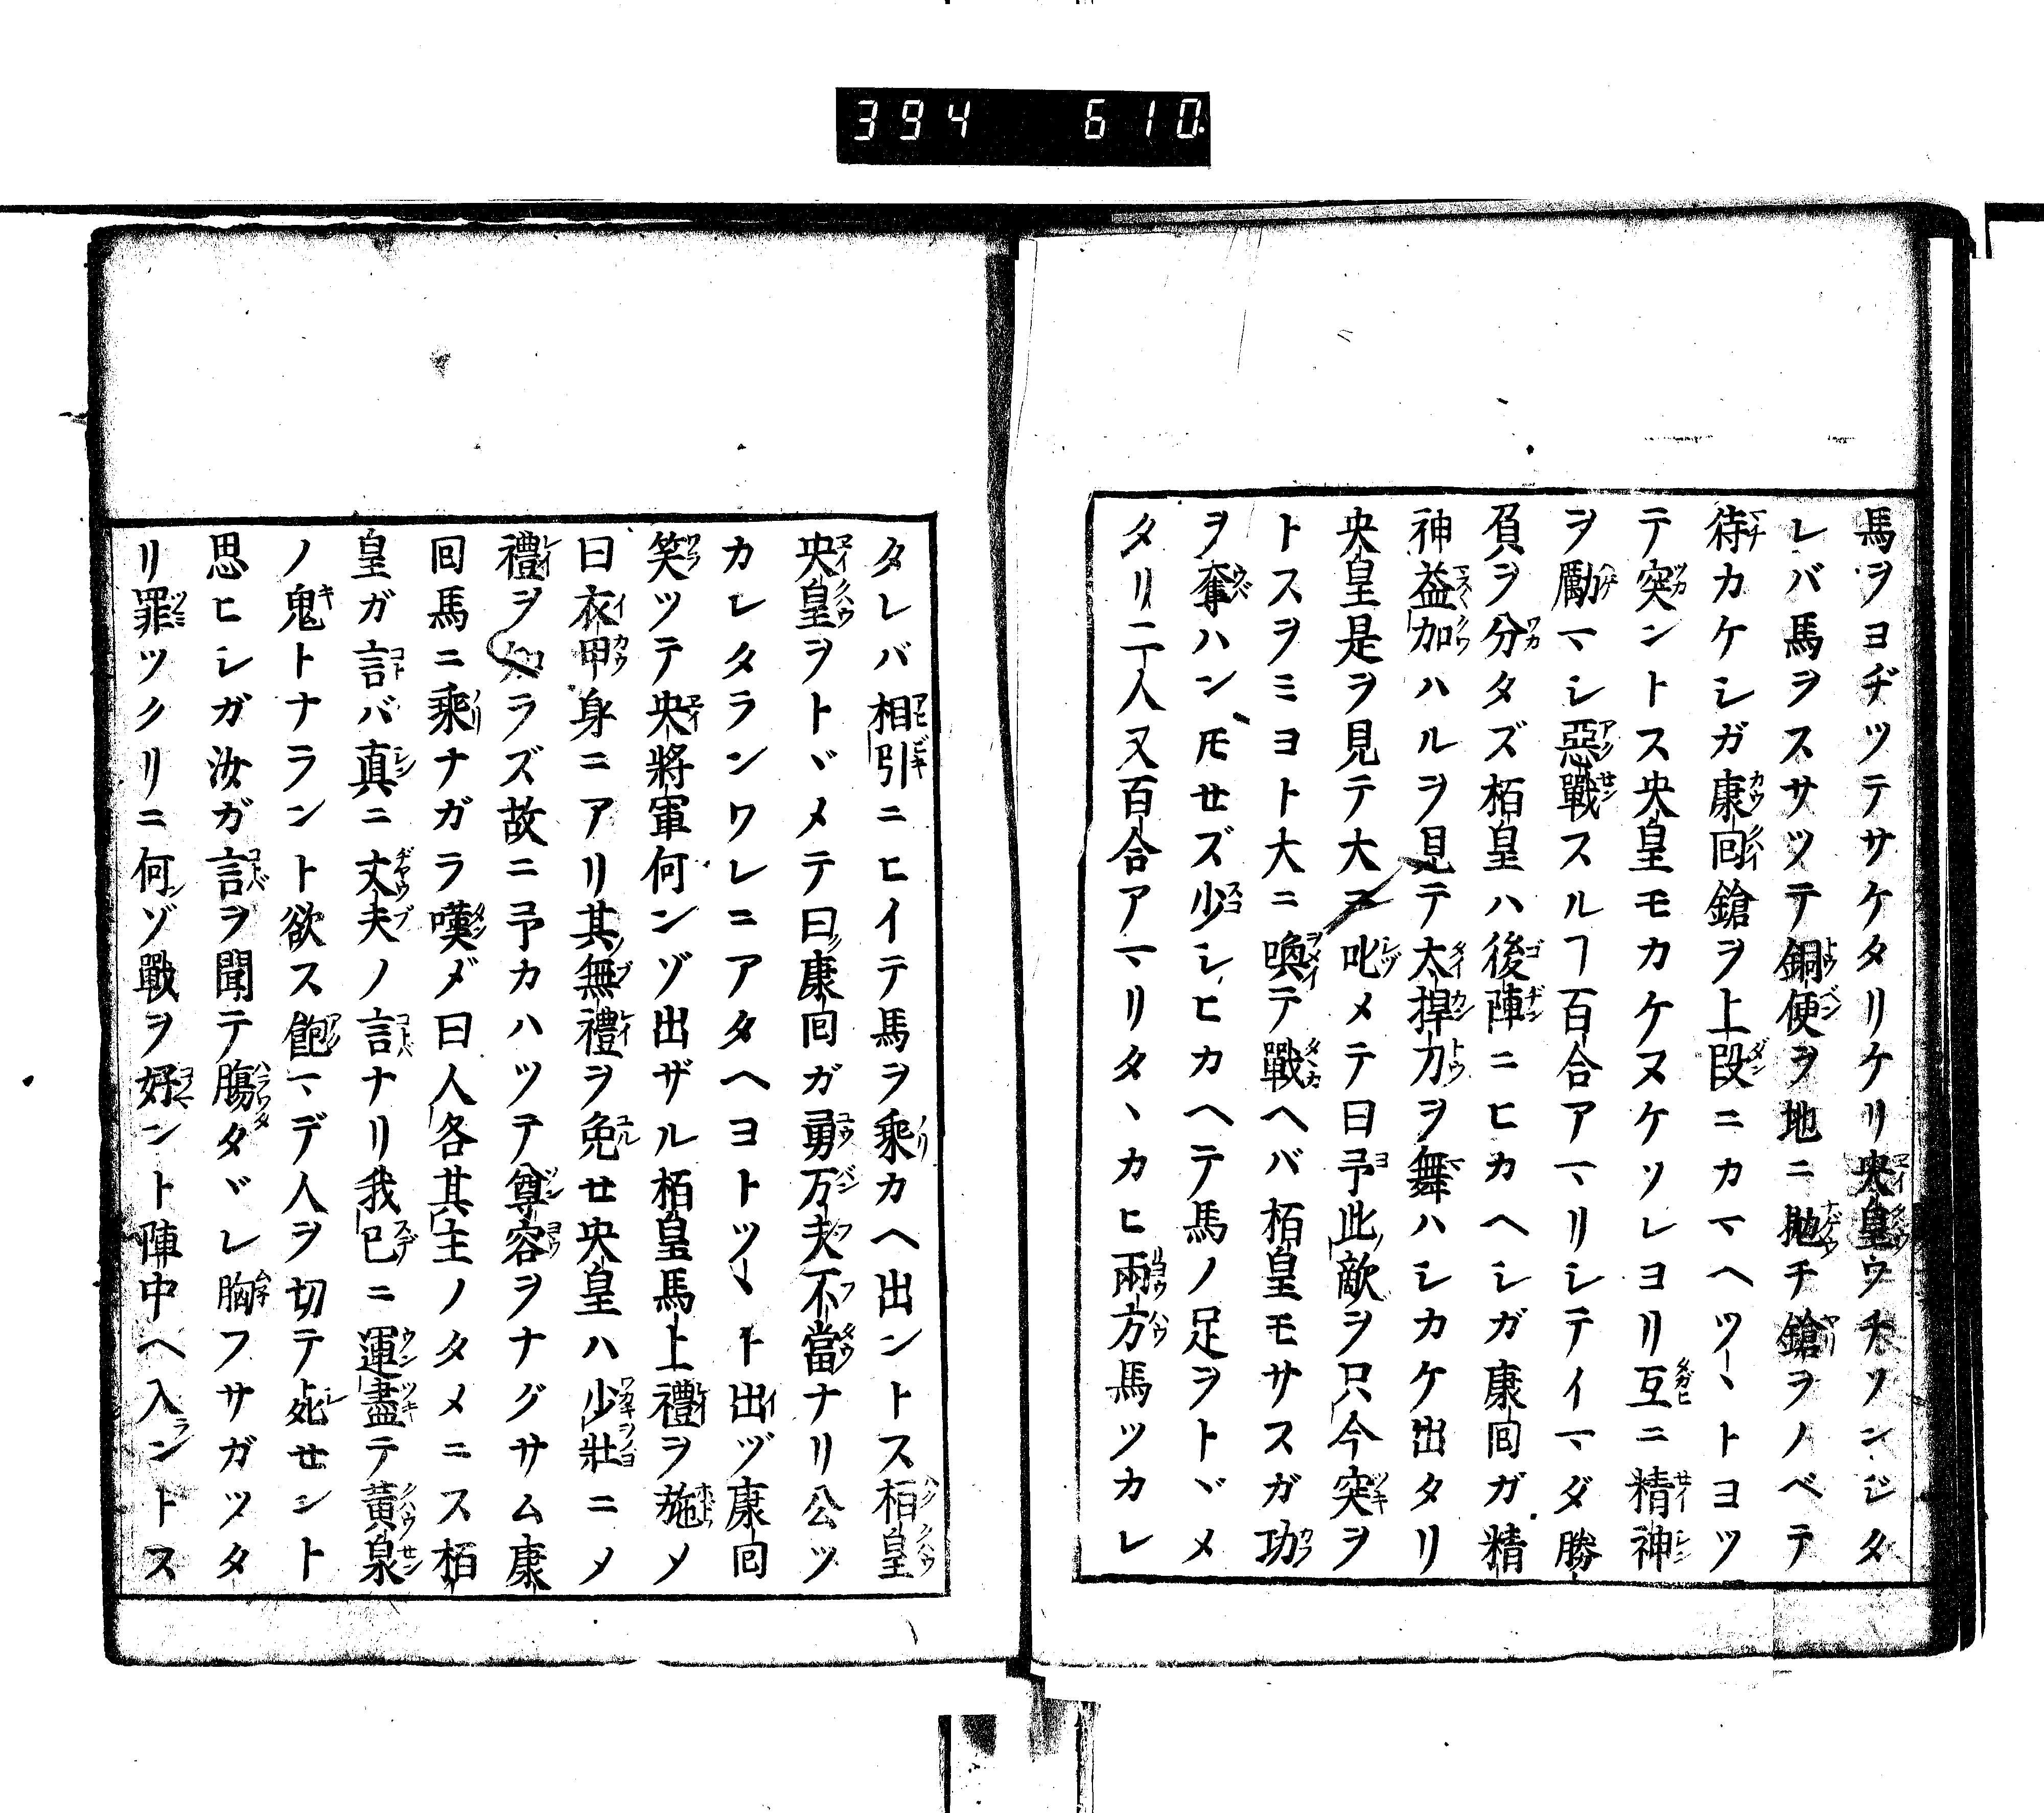 394 610
馬ヲヨヂツテサケタリケリ央皇ウチソンジタ
レバ馬ヲスサツテ銅便ヲ地ニ抛チ鎗ヲノベテ
待カケシガ康回鎗ヲ上段ニカマヘツヽトヨツ
テ突ントス央皇モカケヌケソレヨリ互ニ精神
ヲ勵マシ惡戰スルヿ百合アマリシテイマダ勝
負ヲ分タズ栢皇ハ後陣ニヒカヘシガ康回ガ精
神益加ハルヲ見テ大捍刀ヲ舞ハシカケ出タリ
央皇是ヲ見テ大ヲ叱メテ曰予此敵ヲ只今突ヲ
トスヲミヨト大ニ喚テ戰ヘバ栢皇モサスガ功
ヲ奪ハンモせズ少シヒカヘテ馬ノ足ヲトヾメ
タリ二人又百合アマリタヽカヒ兩方馬ツカレ
タレバ相引ニヒイテ馬ヲ乘カヘ出ントス栢皇
央皇ヲトヾメテ曰康回ガ勇万夫不當ナリ公ツ
カレタランワレニアタヘヨトツヽト出ヅ康回
笑ツテ央將軍何ンゾ出ザル栢皇馬上禮ヲ施メ
曰衣甲身ニアリ其無禮ヲ免せ央皇ハ少壯ニメ
禮ヲ知ラズ故ニ予カハツテ尊容ヲナグサム康
回馬ニ乘ナガラ嘆ジ曰人各其主ノタメニス栢
皇ガ言バ真ニ丈夫ノ言ナリ我已ニ運盡テ黃泉
ノ鬼トナラント欲ス飽マデ人ヲ切テ死せント
思ヒシガ汝ガ言ヲ聞テ膓タヾレ胸フサガツタ
リ罪ツクリニ何ゾ戰ヲ好ント陣中ヘ入ントス